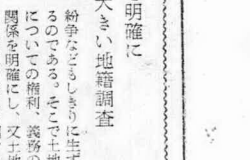 明確に
大きい地籍調査
紛争などもしきりに生ず
るのである。そこで土地
についての権利、義務の
関係を明確にし、又土地